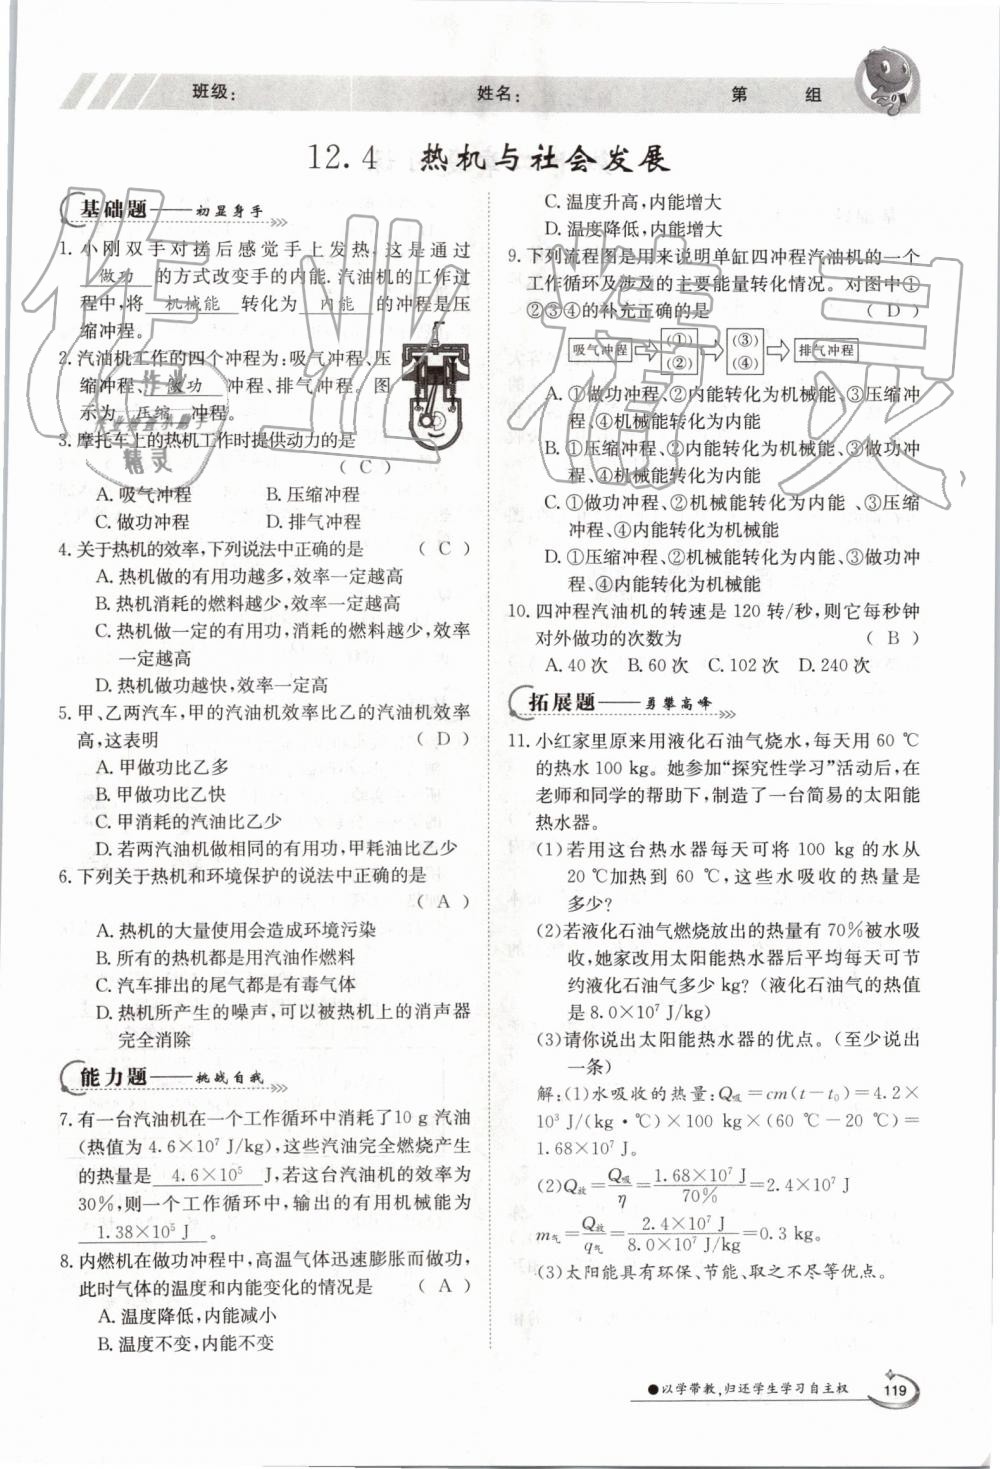 班级: 姓名: 第 组
12.4 热机与社会发展
基础题——初显身手
1. 小刚双手对搓后感觉手上发热,这是通过
做功 的方式改变手的内能.汽油机的工作过
程中,将 机械能 转化为 内能 的冲程是压
缩冲程。
2. 汽油机工作的四个冲程为:吸气冲程、压
缩冲程、 做功 冲程、排气冲程。图
示为 压缩 冲程。
3. 摩托车上的热机工作时提供动力的是
( C )
A. 吸气冲程 B. 压缩冲程
C. 做功冲程 D. 排气冲程
4. 关于热机的效率,下列说法中正确的是 ( C )
A. 热机做的有用功越多,效率一定越高
B. 热机消耗的燃料越少,效率一定越高
C. 热机做一定的有用功,消耗的燃料越少,效率
一定越高
D. 热机做功越快,效率一定越高
5. 甲、乙两汽车,甲的汽油机效率比乙的汽油机效率
高,这表明 ( D )
A. 甲做功比乙多
B. 甲做功比乙快
C. 甲消耗的汽油比乙少
D. 若两汽油机做相同的有用功,甲耗油比乙少
6. 下列关于热机和环境保护的说法中正确的是
( A )
A. 热机的大量使用会造成环境污染
B. 所有的热机都是用汽油作燃料
C. 汽车排出的尾气都是有毒气体
D. 热机所产生的噪声,可以被热机上的消声器
完全消除
能力题——挑战自我
7. 有一台汽油机在一个工作循环中消耗了10 g 汽油
(热值为 4.6×10⁷ J/kg),这些汽油完全燃烧产生
的热量是 4.6×10⁵ J,若这台汽油机的效率为
30%,则一个工作循环中,输出的有用机械能为
1.38×10⁵ J 。
8. 内燃机在做功冲程中,高温气体迅速膨胀而做功,
此时气体的温度和内能变化的情况是 ( A )
A. 温度降低,内能减小
B. 温度不变,内能不变
C. 温度升高,内能增大
D. 温度降低,内能增大
9. 下列流程图是用来说明单缸四冲程汽油机的一个
工作循环及涉及的主要能量转化情况。对图中①
②③④的补充正确的是 ( D )
吸气冲程 (①) (②) (③) (④) 排气冲程
A. ①做功冲程、②内能转化为机械能、③压缩
冲程、④机械能转化为内能
B. ①压缩冲程、②内能转化为机械能、③做功
冲程、④机械能转化为内能
C. ①做功冲程、②机械能转化为内能 、③压缩
冲程、④内能转化为机械能
D. ①压缩冲程、②机械能转化为内能、③做功冲
程、④内能转化为机械能
10. 四冲程汽油机的转速是 120 转/秒,则它每秒钟
对外做功的次数为 ( B )
A. 40 次 B. 60 次 C. 102 次 D. 240 次
拓展题——勇攀高峰
11. 小红家里原来用液化石油气烧水,每天用 60 ℃
的热水 100 kg。她参加“探究性学习”活动后,在
老师和同学的帮助下,制造了一台简易的太阳能
热水器。
(1)若用这台热水器每天可将 100 kg 的水从
20 ℃加热到 60 ℃,这些水吸收的热量是
多少?
(2)若液化石油气燃烧放出的热量有 70%被水吸
收,她家改用太阳能热水器后平均每天可节
约液化石油气多少 kg?(液化石油气的热值
是 8.0×10⁷ J/kg)
(3)请你说出太阳能热水器的优点。(至少说出
一条)
解:(1)水吸收的热量:Q吸=cm(t−t₀)=4.2×
10³ J/(kg·℃)×100 kg×(60 ℃−20 ℃)=
1.68×10⁷ J。
(2)Q放=Q吸/η=1.68×10⁷ J/70%=2.4×10⁷ J
m气=Q放/q气=2.4×10⁷ J/8.0×10⁷ J/kg=0.3 kg。
(3)太阳能具有环保、节能、取之不尽等优点。
●以学带教,归还学生学习自主权 119
作业精灵
作业
精灵